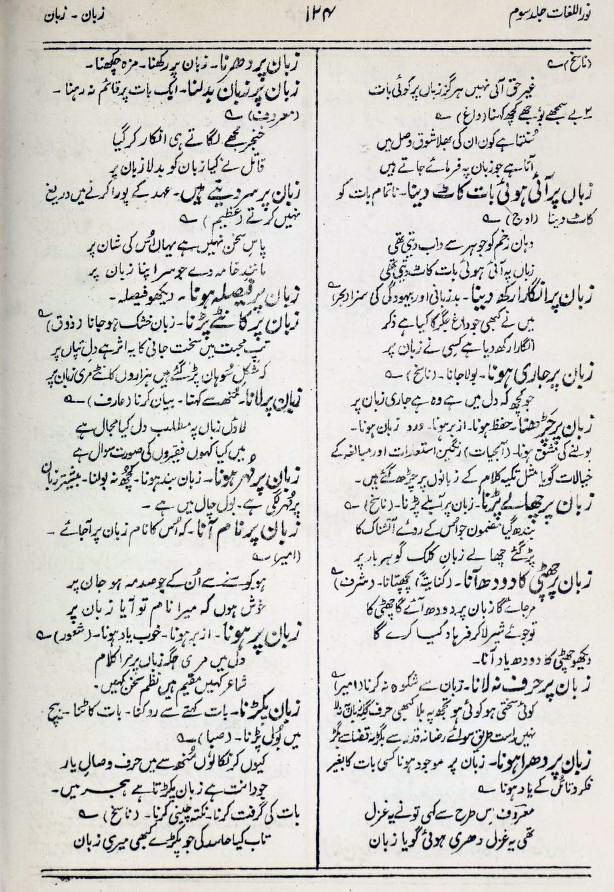 نور اللغات جلد سوم
۱۲۴
زبان - زبان
(ناسخ) ؎
غیر حق آتی نہیں ہرگز زباں پر کوئی بات
۲ بے سمجھے بُوجھے کچھ کہنا (داغ) ؎
سُنتا ہے کون ان کی بھلا شوق وصل میں
آتا ہے جو زبان پہ فرمائے جاتے ہیں
زباں پر آئی ہوئی بات کاٹ دینا۔ ناتمام بات کو
کاٹ دینا (اوج) ؎
دہان زخم کو جوہر سے داب دیتی تھی
زباں پہ آئی ہوئی بات کاٹ دیتی تھی
زبان پر انگارا رکھ دینا۔ بدزبانی اور بیہودگی کی سزا (بحر) ؎
میں نے کبھی جو داغ جگر کا کیا ہے ذکر
انگارا رکھ دیا ہے کسی نے زبان پر
زبان پر جاری ہونا۔ بولا جانا۔ (ناسخ) ؎
جو کچھ کہ دل میں ہے وہ ہے جاری زبان پر
زبان پر چڑھنا۔ حفظ ہونا۔ ازبر ہونا۔ ورد زبان ہونا۔
بولنے کی مشق ہونا۔ (آبحیات) رنگین استعارات اور مبالغہ کے
خیالات گویا مثل تکیہ کلام کے زبانوں پر چڑھ گئے ہیں۔
زبان پر چھالے پڑنا۔ زبان پر آبلے پڑنا۔ (ناسخ) ؎
بندھ گیا مضمون جو اُس کے روئے آتشناک کا
پڑ گئے چھالے زبان کلک گوہر بار پر
زبان پر چھٹی کا دودھ آنا۔ (کنایۃً) پچھتانا۔ (شرف) ؎
مر جائے گا زبان پر دودھ آئے گا چھٹی کا
تو جوئے شیر لا کر فرہاد کیا کرے گا
دیکھو چھٹی کا دودھ یاد آنا۔
زبان پر حرف نہ لانا۔ زبان سے شکوہ نہ کرنا (امیر) ؎
کوئی سختی ہو کوئی ہو تجھ پہ بلا کبھی حرف گلہ زباں پہ نہ لا
نہیں است طریق سوائے رضا نہ قدر سے بگڑ نہ قضا سے بگڑ
زبان پر دھرا ہونا۔ زبان پر موجود ہونا کسی بات کا بغیر
فکر و تامّل کے یاد ہونا ؎
معروف جس طرح سے کہی تو نے یہ غزل
تھی یہ غزل دھری ہوئی گویا زبان
زبان پر دھرنا۔ زبان پر رکھنا۔ مزہ چکھنا۔
زبان پر زبان بدلنا۔ ایک بات پر قائم نہ رہنا۔
(معروف) ؎
خنجر مجھے لگاتے ہی انکار کر گیا
قاتل نے کیا زبان کو بدلا زبان پر
زبان پر سر دیتے ہیں۔ عہد کے پورا کرنے میں دریغ
نہیں کرتے (عظیم) ؎
پاس سخن نہیں ہے یہاں اُس کی شان پر
مانند خامہ دے جو سر اپنا زبان پر
زبان پر فیصلہ ہونا۔ دیکھو فیصلہ۔
زبان پر کانٹے پڑنا۔ زبان خشک ہو جانا (ذوق) ؎
تپ محبت میں سخت جانی کا یہ اثر ہے دل تپاں پر
کہ شکل سوہان پڑ گئے ہیں ہزاروں کانٹے مری زبان پر
زبان پر لانا۔ مُنھ سے کہنا۔ بیان کرنا (عارف) ؎
لاؤں زباں پہ مطلب دل کیا مجال ہے
میں کیا کہوں فقیروں کی صورت سوال ہے
زبان پر مُہر ہونا۔ زبان بند ہونا۔ کچھ نہ بولنا۔ بیشتر زبان
پر مُہر لگی ہے۔ بول چال میں ہے۔
زبان پر نام آنا۔ کہ اُس کا نام زبان پر آجائے۔
(امیر) ؎
ہو کوسنے سے اُن کے جو صدمہ ہو جان پر
خوش ہوں کہ میرا نام تو آیا زبان پر
زبان پر ہونا۔ ازبر ہونا۔ خوب یاد ہونا۔ (شعور) ؎
دل میں مری جگہ زباں پر ترا کلام
شاعر کہیں مقیم ہیں نظم سخن کہیں۔
زبان پکڑنا۔ بات کہنے سے روکنا۔ بات کاٹنا۔ بیچ
میں بول پڑنا۔ (صبا) ؎
کیوں کر نکالوں مُنھ سے میں حرف وصال یار
خود دانت ہے زبان پکڑتا ہے ہجر میں۔
بات کی گرفت کرنا۔ نکتہ چینی کرنا۔ (ناسخ) ؎
تاب کیا حاسد کی جو پکڑے کبھی میری زبان